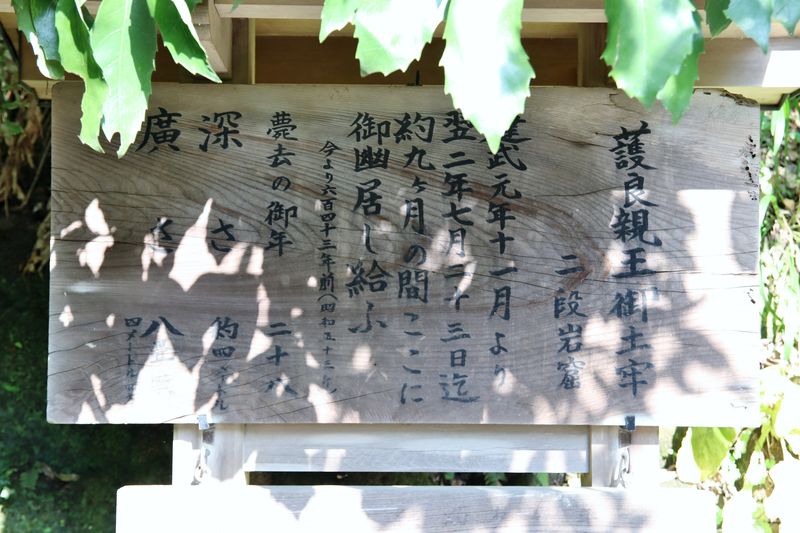 護良親王御土牢
二段岩窟
武元年十一月より
翌二年七月二十三日迄
約九ヶ月の間ここに
御幽居し給ふ
今より六百四十三年前(昭和五十三年)
薨去の御年 二十八
深さ 約四メートル
廣さ 八
四メートル